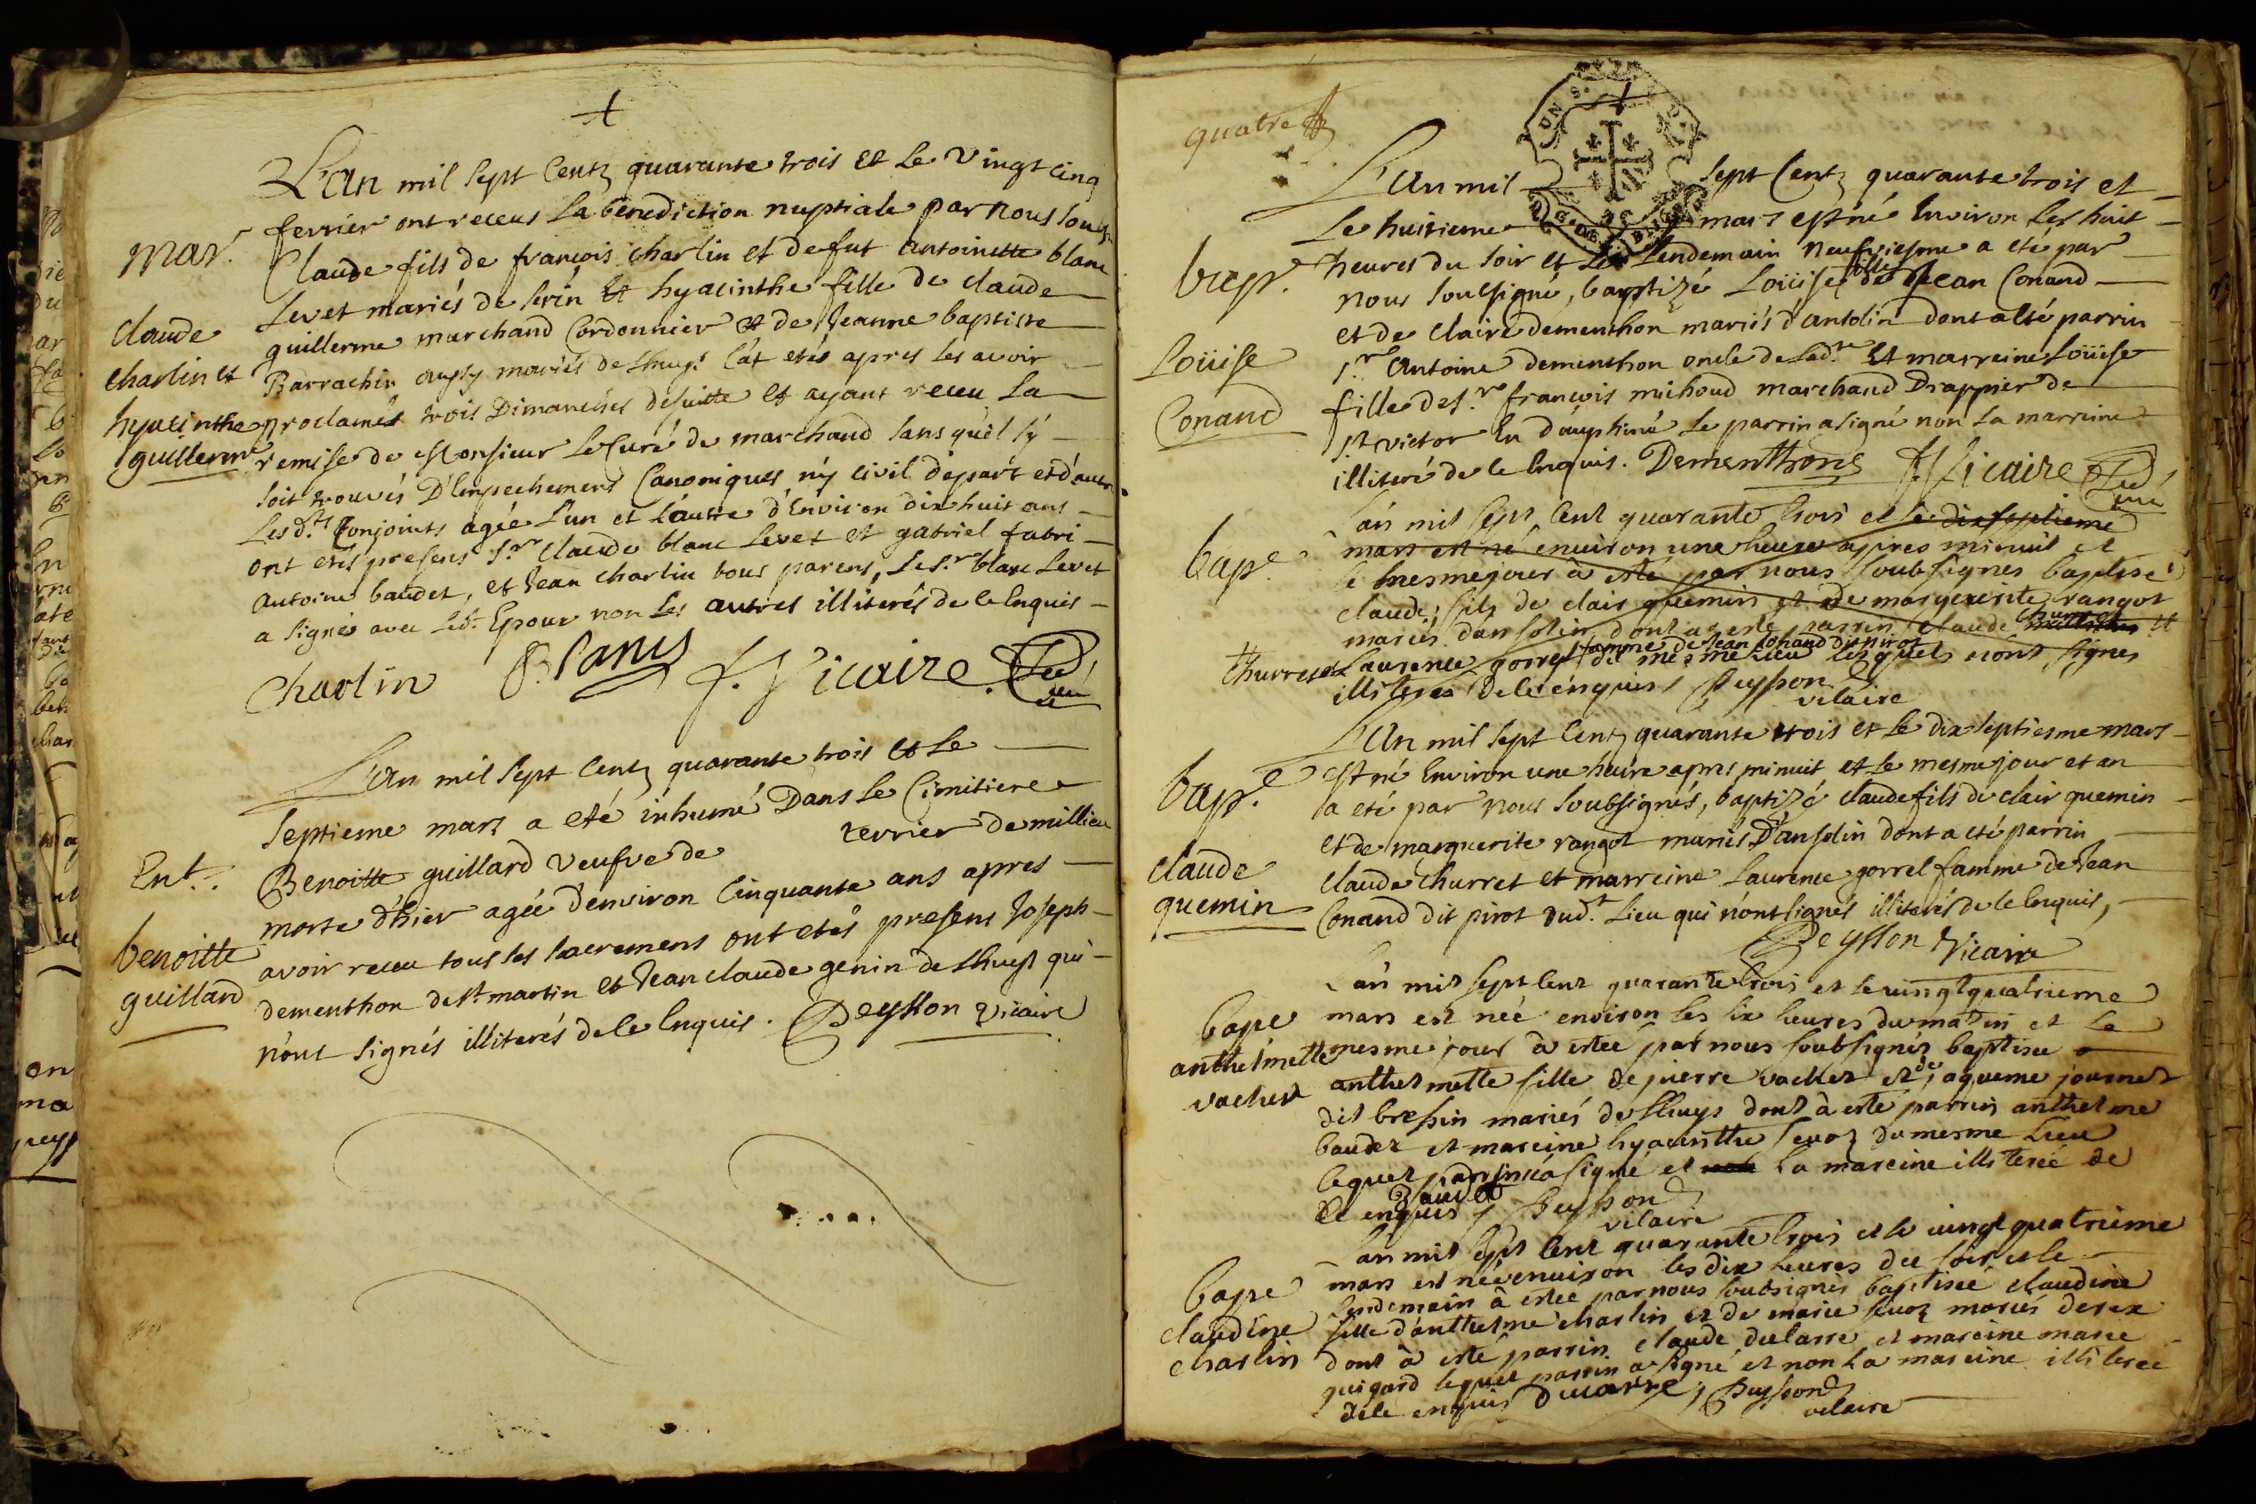 L'an mil sept Centz quarante trois et le vingt cinq
fevrier ont receus la benediction nuptiale par nous
mar.
Claude fils de françois charlin et de fut antoinette blanc
Levet mariés de Serin et hyacinthe fille de claude
claude
guillerme marchand Cordonnier et de Jeanne baptiste
charlin et
Barrachin mariés de etés apres les avoir
hyacinthe
proclamés trois Dimanches desuitte et ayant receu la
guillerme
remise de Monsieur le Curé de marchand sans quil sÿ
soit trouvés D'Empechemens Canoniques nÿ civil depart et d'autre
Lesd.ts Conjoints agée L'un et l'autre d'Environ dix huit ans
ont etés presens S.r Claude blanc Levet et gabriel fabri
antoine baudet, et Jean charlin tous parens, Le S.r blanc Levet
a signés avec led.t Epoux non les autres illiterés de le Enquis
Charlin Blanc f. Vicaire
L'an mil sept Centz quarante trois et Le
septieme mars a eté inhumé Dans le Cimitiere
Ent.
Benoitte guillard veufve de revrier de millieu
morte d'hier agée denviron Cinquante ans apres
benoitte
avoir receu tous les sacremens ont etés presens Joseph
guillard
dementhon de st martin et Jean claude genin de Lhuys qui
n'ont signés illiterés de le Enquis. Peysson vicaire
quatre
L'an mil sept Centz quarante trois et
Le huitieme mars est né Environ les huit
bapt.
heures du soir et le Lendemain neufviesme a eté par
nous soussigné, baptizé Loüise fille de Jean Conand
et de claire dementhon mariés d'ansolin dont a eté parrin
Loüise
s.r Antoine dementhon oncle de lad.te et marreine Loüise
Conand
fille de s.r françois michoud marchand Drappier de
st victor en dauphiné le parrin a signé non la marreine
illiteré de le Enquis. Dementhons f. Vicaire
L'an mil sept Cent quarante trois et le dix septieme
bap.e
mars est né environ une heure apres minuit et
le mesme jour à esté par nous soubsignes baptisé
claude fils de clair quemin et de marguerite rangot
mariés d'ansolin dont a esté parrin claude churret et
Laurence gorrel famme de Jean Conand dit pirot
du mesme lieu lesquels n'ont signes
illiteres de le enquis Peysson
vicaire
L'an mil sept Centz quarante trois et le dix septiesme mars
bap.e
est né Environ une heure apres minuit et le mesme jour et an
a eté par nous soubsignés, baptizé claude fils de clair quemin
et de marguerite rangot mariés D'ansolin dont a eté parrin
claude
claude churret et marreine Laurence gorrel famme de Jean
quemin
Conand dit pirot dud.t Lieu qui n'ont signés illiterés de le Enquis,
Peysson Vicaire
L'an mil sept cent quarante trois et le vingt quatrieme
bape
mars est née environ les six heures du matin et le
anthelmette
mesme jour à estée par nous soubsignes baptisée
vachet
anthelmette fille de pierre vachet et de jaqueme journet
dit bressin mariés de Lhuys dont à esté parrin anthelme
baudet et mareine hyacinthe sevoz du mesme Lieu
lequel parrin a signé et la mareine illiterée de
le enquis Baudet Peysson
vicaire
L'an mil sept cent quarante trois et le vingt quatrieme
bape
mars est née environ les dix heures du soir et le
lendemain à estée par nous soubsignes baptisée claudine
claudine
fille d'anthelme charlin et de marie sevoz mariés de rix
charlin
dont à esté parrin claude ducarre et mareine marie
guigard lequel parrin a signé et non la mareine illiterée
de le enquis Ducarre Peysson
vicaire